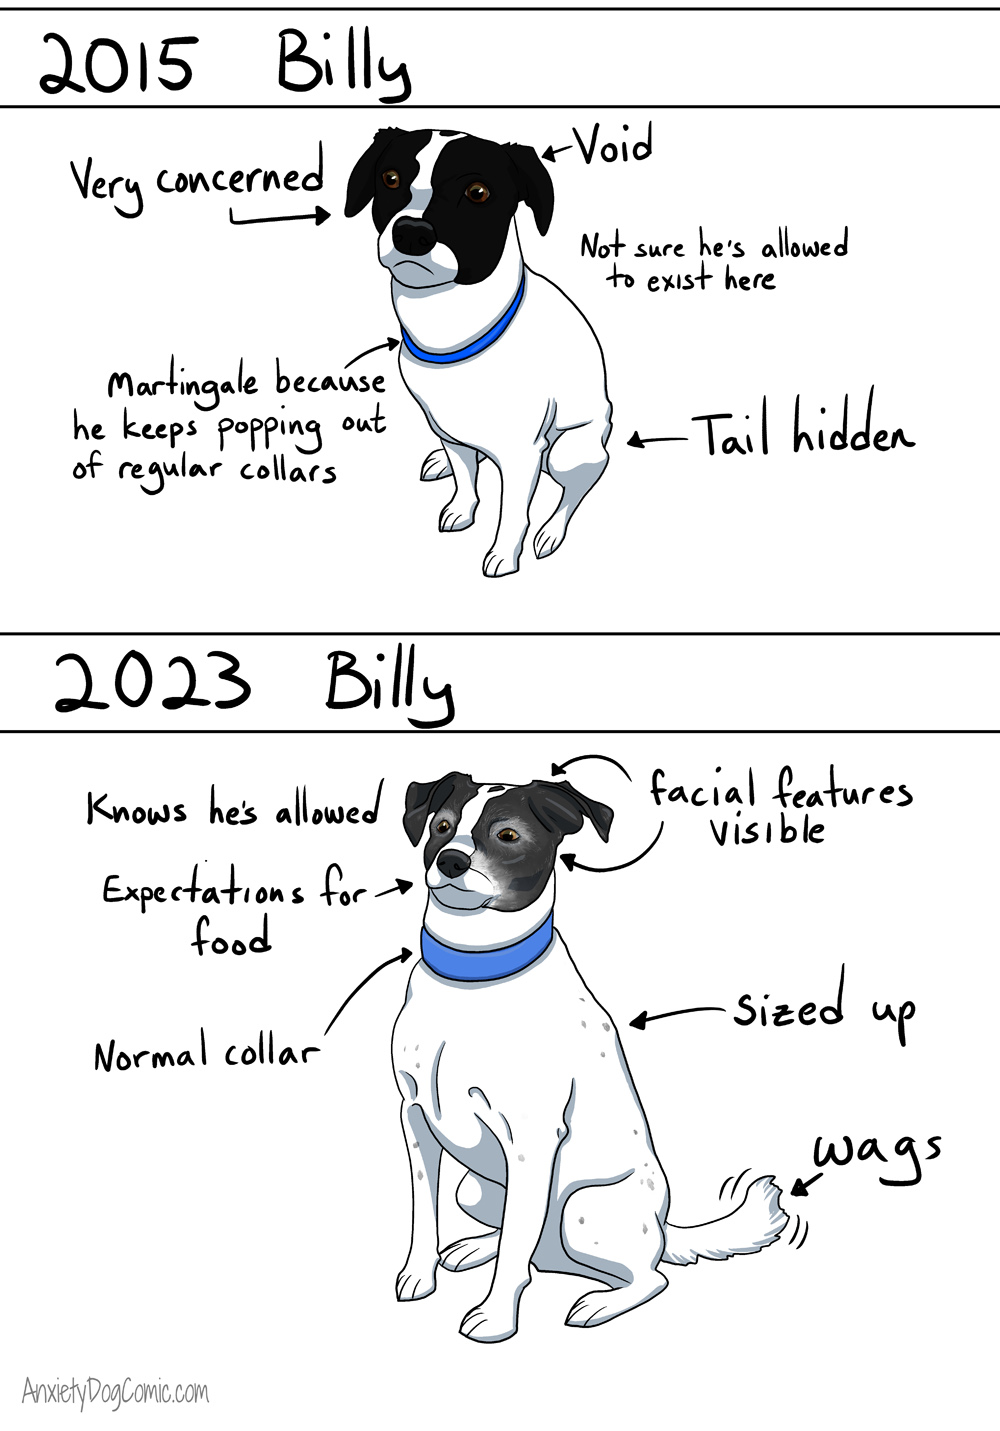 2015 Billy
Very concerned
Void
Not sure he's allowed
to exist here
Martingale because
he keeps popping out
of regular collars
Tail hidden
2023 Billy
Knows he's allowed
facial features
visible
Expectations for
food
Normal collar
Sized up
wags
AnxietyDogComic.com